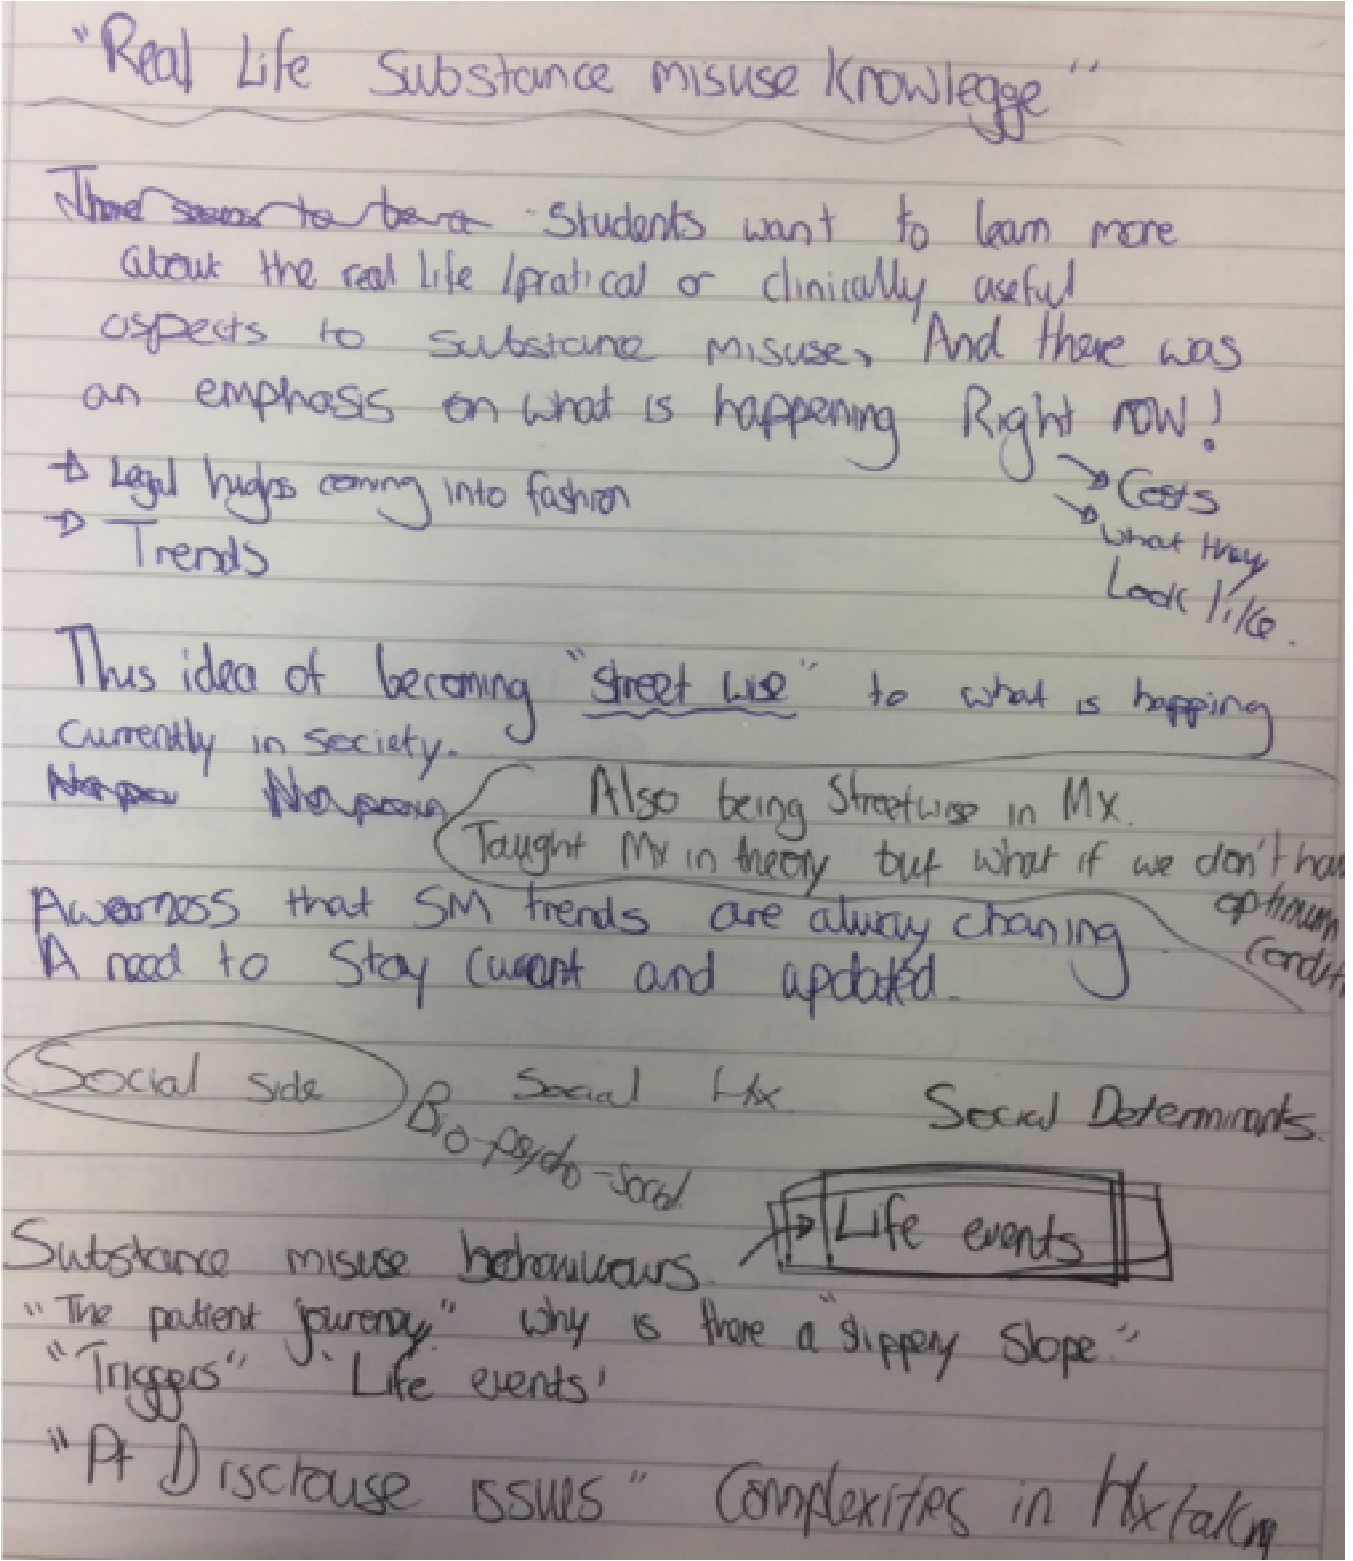 "Real Life Substance misuse Knowlegge"
There seems to be a · Students want to learn more
about the real life / pratical or clinically useful
aspects to substance misuse, And there was
an emphasis on what is happening Right now!
→ Legal highs coming into fashion
→ Trends
→ Costs
→ what they
Look like.
This idea of becoming "street wise" to what is happing
Currently in society.
Also being Streetwise in Mx.
Taught Mx in theory but what if we don't hav
optimum
Condit
Awarness that SM trends are alway chaning
A need to Stay Current and updated.
Social side Social Hx. Social Determinants.
Bio-psycho-social
→ Life events
Substance misuse behaviuours
"The patient journey" why is there a "slippery Slope."
"Triggers" 'Life events'
"Pt Disclouse issues" Complexities in Hx/taking